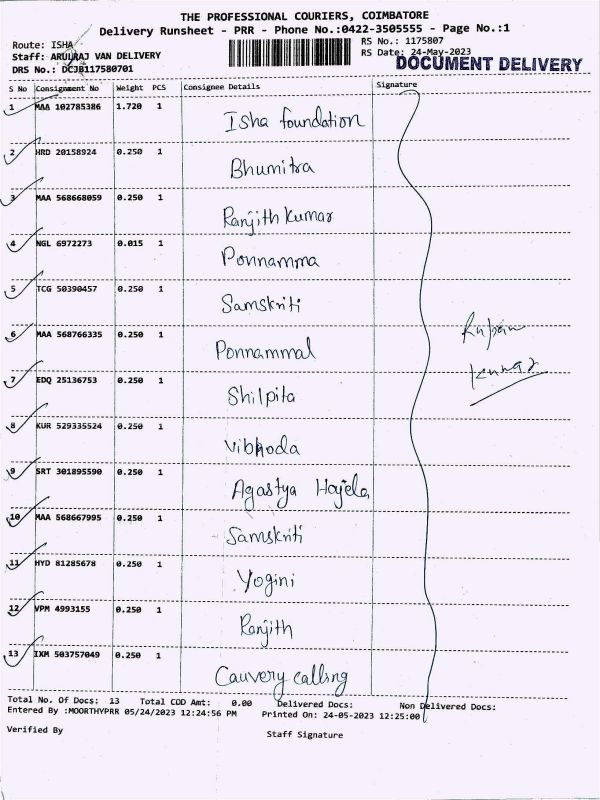 THE PROFESSIONAL COURIERS, COIMBATORE
Delivery Runsheet - PRR - Phone No.:0422-3505555 - Page No.:1
Route: ISHA RS No.: 1175807
Staff: ARULRAJ VAN DELIVERY RS Date: 24-May-2023
DOCUMENT DELIVERY
DRS No.: DCJB117580701
S No Consignment No Weight PCS Consignee Details Signature
1 MAA 102785386 1.720 1 Isha foundation
2 HRD 20158924 0.250 1 Bhumitra
3 MAA 568668059 0.250 1 Ranjith Kumar
4 NGL 6972273 0.015 1 Ponnamma
5 TCG 50390457 0.250 1 Samskriti
6 MAA 568766335 0.250 1 Ponnammal
7 EDQ 25136753 0.250 1 Shilpita
8 KUR 529335524 0.250 1 Vibhoda
9 SRT 301895590 0.250 1 Agastya Hajela
10 MAA 568667995 0.250 1 Samskriti
11 HYD 81285678 0.250 1 Yogini
12 VPM 4993155 0.250 1 Ranjith
13 IXM 503757049 0.250 1 Cauvery calling
Kumar
Total No. Of Docs: 13 Total COD Amt: 0.00 Delivered Docs: Non Delivered Docs:
Entered By :MOORTHYPRR 05/24/2023 12:24:56 PM Printed On: 24-05-2023 12:25:00
Verified By Staff Signature